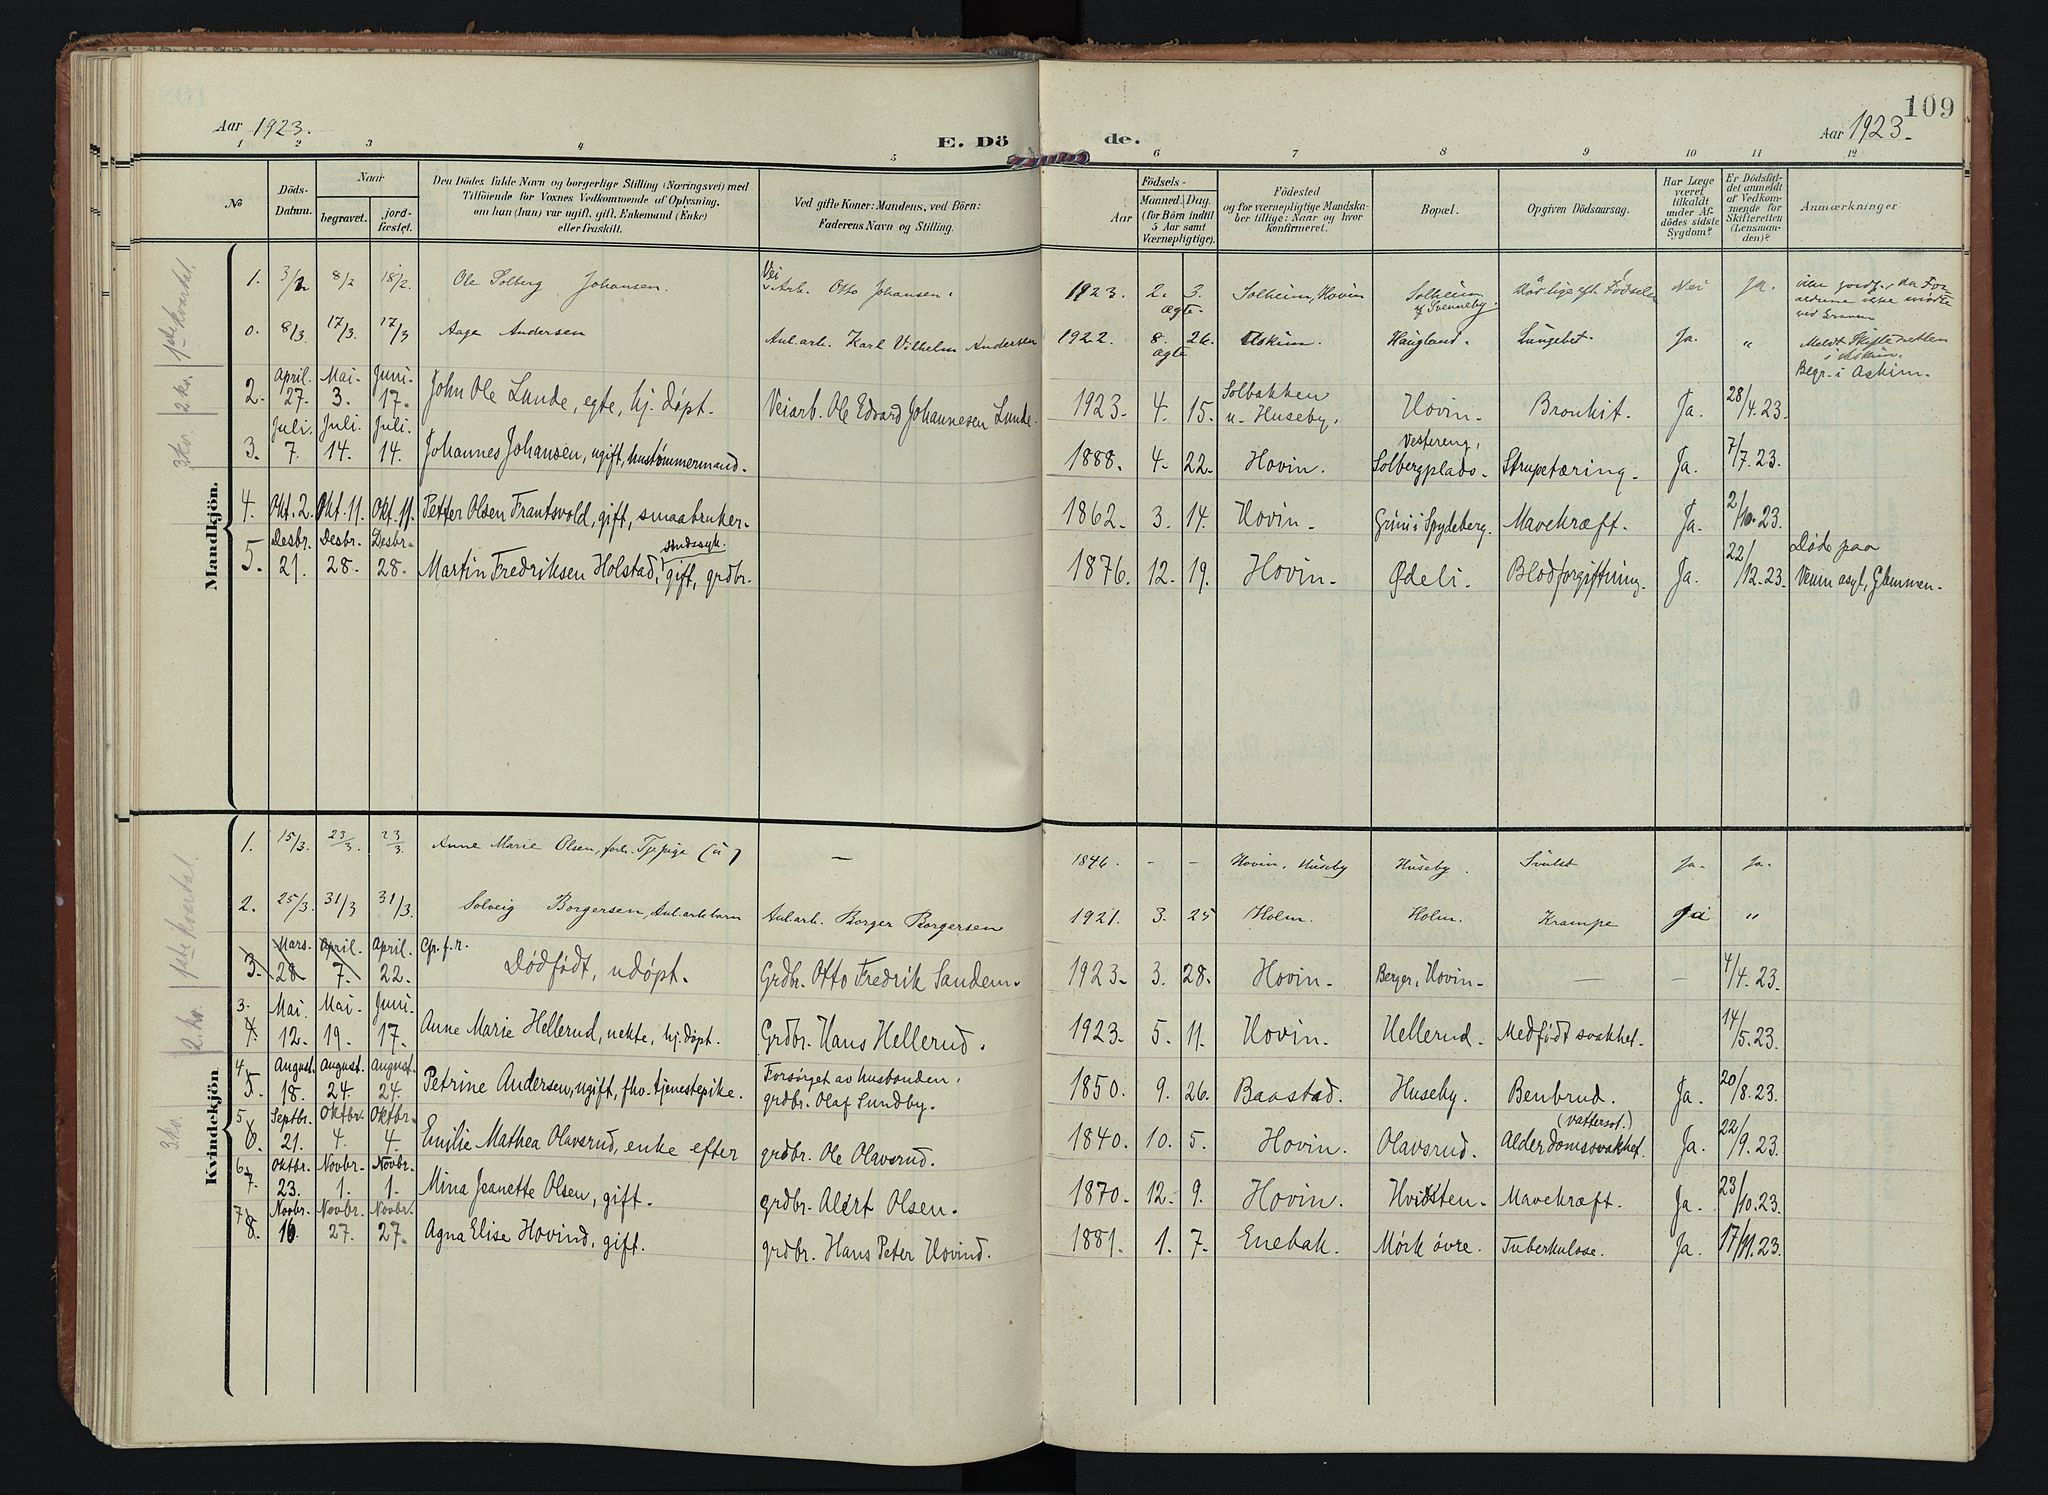 109
Aar 1923.
E. Dö de.
Aar 1923.
1 2 3 4 5 6 7 8 9 10 11 12
No
Döds-
Datum.
Naar
begravet.
jord-
fæstet.
Den Dödes fulde Navn og borgerlige Stilling (Næringsvei) med
Tilföiende for Voxnes Vedkommende af Oplysning,
om han (hun) var ugift, gift, Enkemand (Enke)
eller fraskilt.
Ved gifte Koner: Mandens, ved Börn:
Faderens Navn og Stilling.
Aar
Födsels-
Maaned. Dag.
(for Börn indtil
5 Aar samt
Værnepligtige).
Födested
og for værnepligtige Mandska-
ber tillige: Naar og hvor
konfirmeret.
Bopæl.
Opgiven Dödsaarsag.
Har Læge
været
tilkaldt
under Af-
dödes sidste
Sygdom?
Er Dödsfal-
det anmeldt
af Vedkom-
mende for
Skifteretten
(Lensman-
den)?
Anmærkninger
Mandkjön.
1ste kvartal.
2. kv.
3 kv.
1. 3/2 8/2 18/2. Ole Solberg Johansen. Vei Arb. Otto Johansen. 1923. 2. 3. ægte. Solheim, Hovin Solheim af Svenneby. Nei Ja.
0. 8/3 17/3. 17/3 Aage Andersen Anl.arb. Karl Vilhelm Andersen 1922 8. 26. ægte Askim. Haugland. Lungebet. Ja. " Meldt Skifteretten i Askim. Begr. i Askim.
2. April. 27. Mai. 3. Juni. 17. John Ole Lunde, egte, hj. døpt. Veiarb. Ole Edvard Johannesen Lunde. 1923. 4. 15. Solbakken u. Huseby. Hovin. Bronkit. Ja. 28/4.23.
3. Juli. 7. Juli. 14. Juli. 14. Johannes Johansen, ugift, hustømmermand. 1888. 4. 22. Hovin. Vestereng, Solbergplads. Strupetæring. Ja. 7/7.23.
4. Okt. 2. Okt. 11. Okt. 11. Petter Olsen Frantsvold, gift, smaabruker. 1862. 3. 14. Hovin. Grini i Spydeberg. Mavekræft. Ja. 2/10.23.
5. Desbr. 21. Desbr. 28. Desbr. 28. Martin Fredriksen Holstad, sindssyk. gift, grdbr. 1876. 12. 19. Hovin. Ødeli. Blodforgiftning. Ja. 22/12.23. Døde paa Veum asyl, Glemmen.
Kvindekjön
1ste kvartal.
2. kv.
3. kv.
1. 15/3. 23/3. 23/3. Anne Marie Olsen, forh. Tj.pige (u) — 1846. - - Hovin, Huseby Huseby. Svulst Ja. Ja.
2. 25/3. 31/3 31/3. Solveig Borgersen, Anl.arb.barn Anl.arb. Borger Borgersen 1921. 3. 25 Holm. Holm. Krampe Ja "
3. Mars. 28 April. 7. April. 22. Cfr. f. r. Dødfødt, udøpt. Grdbr. Otto Fredrik Sandem. 1923. 3. 28. Hovin. Berger, Hovin. — — 4/4.23.
3. 4. Mai. 12. Mai. 19. Juni. 17. Anne Marie Hellerud, uekte, hj. døpt. Grdbr. Hans Hellerud. 1923. 5. 11. Hovin. Hellerud. Medfødt svakhet. 14/5.23.
4. 5. August. 18. August. 24. August. 24. Petrine Andersen, ugift, fhv. tjenestepike. Forsørget av husbonden, grdbr. Olaf Sundby. 1850. 9. 26. Baastad. Huseby. Benbrud. Ja. 20/8.23.
5 6. Septbr. 21. Oktbr. 4. Oktbr. 4. Emilie Mathea Olavsrud, enke efter grdbr. Ole Olavsrud. 1840. 10. 5. Hovin. Olavsrud. (vattersot.) Alderdomssvakhet. Ja. 22/9.23.
6. 7. Oktbr. 23. Novbr. 1. Novbr. 1. Mina Jeanette Olsen, gift. grdbr. Alert Olsen. 1870. 12. 9. Hovin. Hvidsten. Mavekræft. Ja. 23/10.23.
7. 8. Novbr. 16. Novbr. 27. Novbr. 27. Agna Elise Hovind, gift. grdbr. Hans Peter Hovind. 1881. 1. 7. Enebak. Mörk övre. Tuberkulose. Ja. 17/11.23.